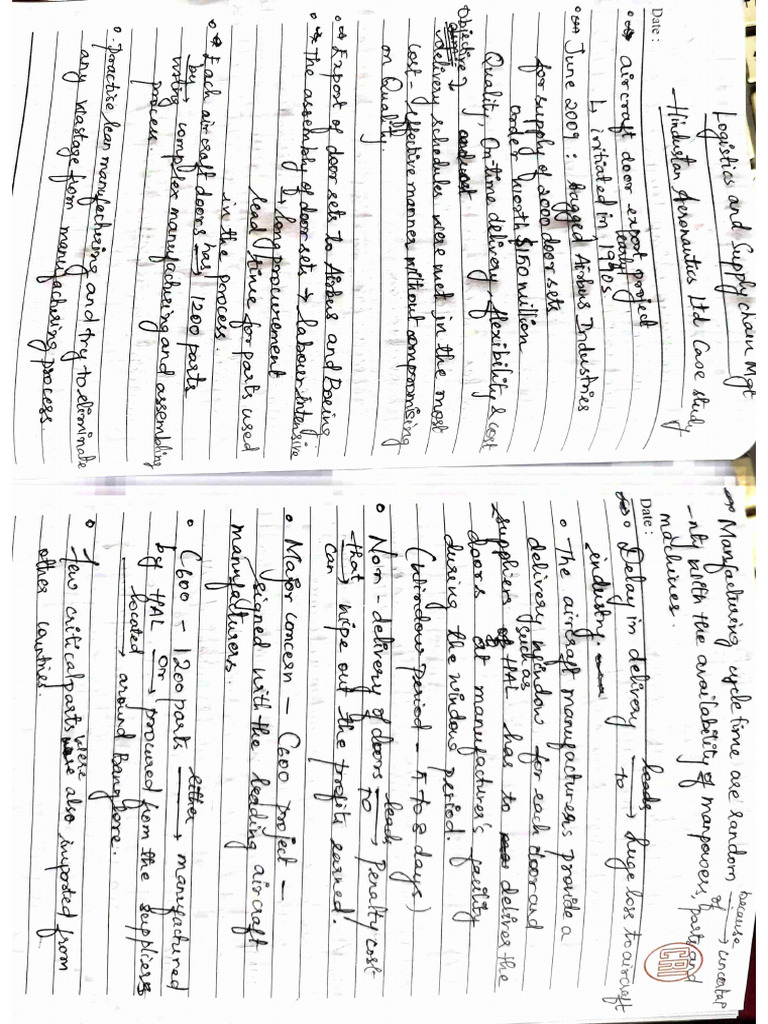 Date :
Logistics and Supply chain Mgt
Hindustan Aeronautics Ltd Case study
aircraft door export project
↳ initiated in early 1990s
June 2009 : bagged Airbus Industries
for supply of 2000 door sets
order worth $150 million
Quality, On-time delivery, flexibility & cost
Objective →
delivery schedules were met in the most
cost-effective manner without compromising
on Quality.
Export of door sets to Airbus and Boeing
The assembly of door sets → labour intensive
↳ long procurement
lead time for parts used
in the process.
Each aircraft doors has → 1200 parts
by → complex manufacturing and assembling
using process
Practise lean manufacturing and try to eliminate
any wastage from manufacturing process.
Date :
→ Manufacturing cycle time are random because of → uncertai
-nty with the availability of manpowers, parts and
machines.
Delay in delivery leads to → huge loss to aircraft
industry.
The aircraft manufacturers provide a
delivery window for each door and
such as
suppliers HAL has to deliver the
doors at manufacturer's facility
during the window period.
(window period - 5 to 8 days)
Non-delivery of doors leads to → Penalty cost
that → wipe out the profit earned.
can
Major concern - C600 project -
signed with the leading aircraft
manufacturers.
C600 - 1200 parts either → manufactured
by HAL or → procured from the suppliers
located → around Banglore.
Few critical parts were also imported from
other countries.
CRI